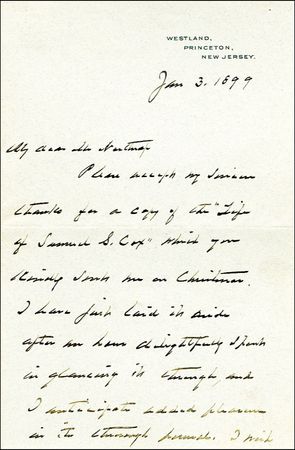 WESTLAND,
PRINCETON,
NEW JERSEY.
Jan 3, 1899
My dear Mr
Please accept my sincere
thanks for a copy of the "Life
of Samuel S. Cox" which you
kindly sent me on Christmas.
I have just laid it aside
after an hour delightfully spent
in glancing it through, and
I anticipate added pleasure
in its thorough perusal. I wish